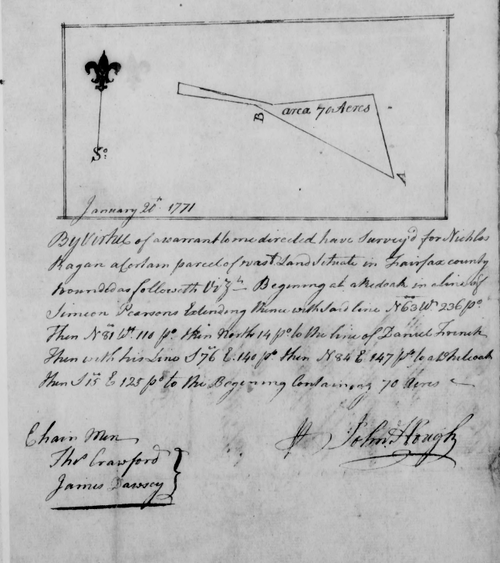 So.
B
area 70 Acres
A
January 20th 1771
By Virtue of a warrant to me directed have Survey'd for Nichlos
Ragan a Certain parcel of wast Land Situate in Fairfax county
Bounded as followeth Vizt. Begening at a Redoak in a line of
Simeon Pearsons Extending thence with said line No 63 Wt 236 po.
Then N 81 Wt. 110 po. then North 14 po to the line of Daniel French
Then with his Line S 76 E. 140 po then N 84 E 147 po to a whiteoak
then S 15 E 125 po to the Begening Containing 70 acres
Chain Men
Thos Crawford
James Dawsey
John Hough